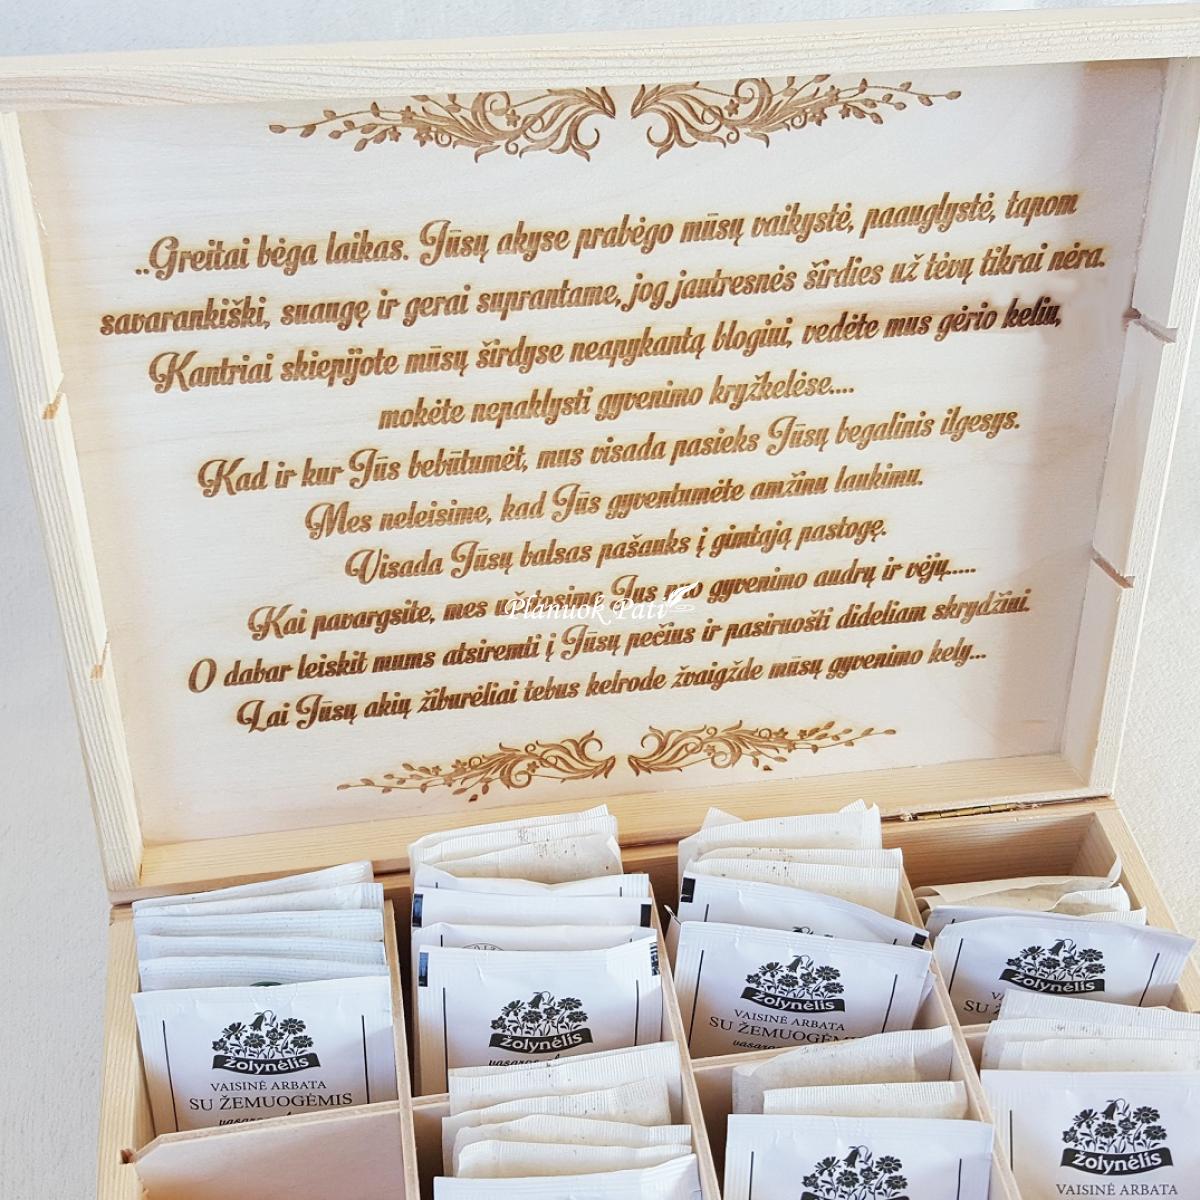 „Greitai bėga laikas. Jūsų akyse prabėgo mūsų vaikystė, paauglystė, tapom
savarankiški, suaugę ir gerai suprantame, jog jautresnės širdies už tėvų tikrai nėra.
Kantriai skiepijote mūsų širdyse neapykantą blogiui, vedėte mus gėrio keliu,
mokėte nepaklysti gyvenimo kryžkelėse....
Kad ir kur Jūs bebūtumėt, mus visada pasieks Jūsų begalinis ilgesys.
Mes neleisime, kad Jūs gyventumėte amžinu laukimu.
Visada Jūsų balsas pašauks į gimtąją pastogę.
Kai pavargsite, mes užstosime Jus nuo gyvenimo audrų ir vėjų.....
Planuok Pati
O dabar leiskit mums atsiremti į Jūsų pečius ir pasiruošti dideliam skrydžiui.
Lai Jūsų akių žiburėliai tebus kelrode žvaigžde mūsų gyvenimo kely...
žolynėlis
VAISINĖ ARBATA
SU ŽEMUOGĖMIS
žolynėlis
žolynėlis
VAISINĖ ARBATA
SU ŽEMUOGĖMIS
žolynėlis
SU
žolynėlis
žolynėlis
VAISINĖ ARBATA